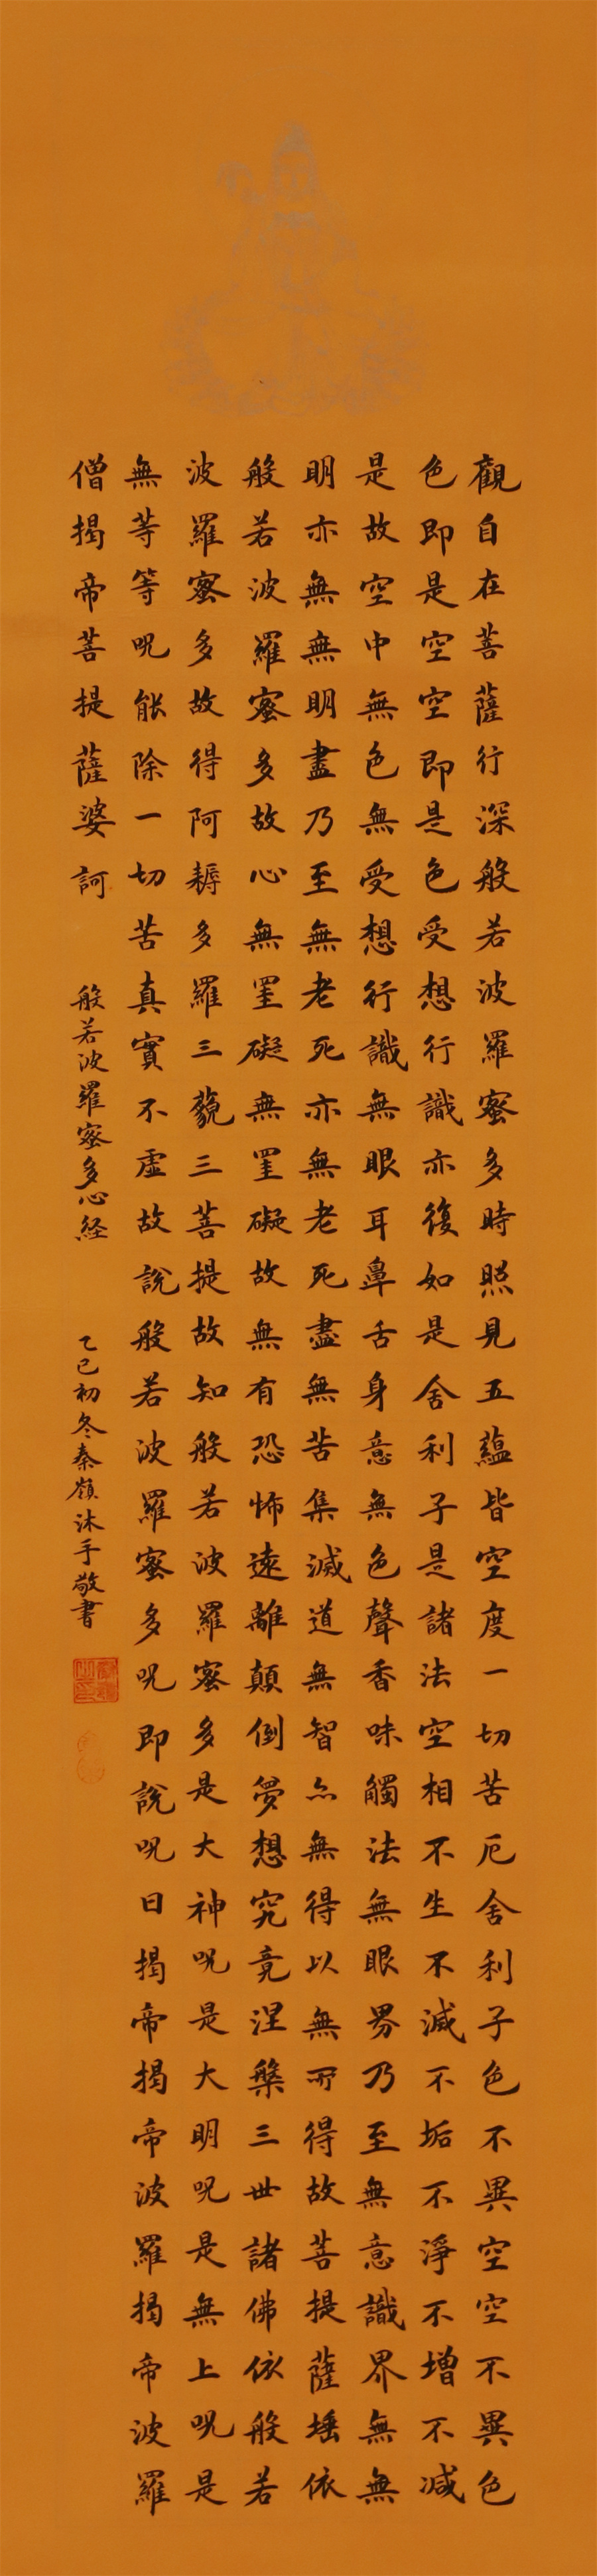 觀自在菩薩行深般若波羅蜜多時照見五蘊皆空度一切苦厄舍利子色不異空空不異色
色即是空空即是色受想行識亦復如是舍利子是諸法空相不生不滅不垢不淨不增不減
是故空中無色無受想行識無眼耳鼻舌身意無色聲香味觸法無眼界乃至無意識界無無
明亦無無明盡乃至無老死亦無老死盡無苦集滅道無智亦無得以無所得故菩提薩埵依
般若波羅蜜多故心無罣礙無罣礙故無有恐怖遠離顛倒夢想究竟涅槃三世諸佛依般若
波羅蜜多故得阿耨多羅三藐三菩提故知般若波羅蜜多是大神呪是大明呪是無上呪是
無等等呪能除一切苦真實不虛故說般若波羅蜜多呪即說呪曰揭帝揭帝波羅揭帝波羅
僧揭帝菩提薩婆訶 般若波羅蜜多心経 乙巳初冬秦嶺沐手敬書